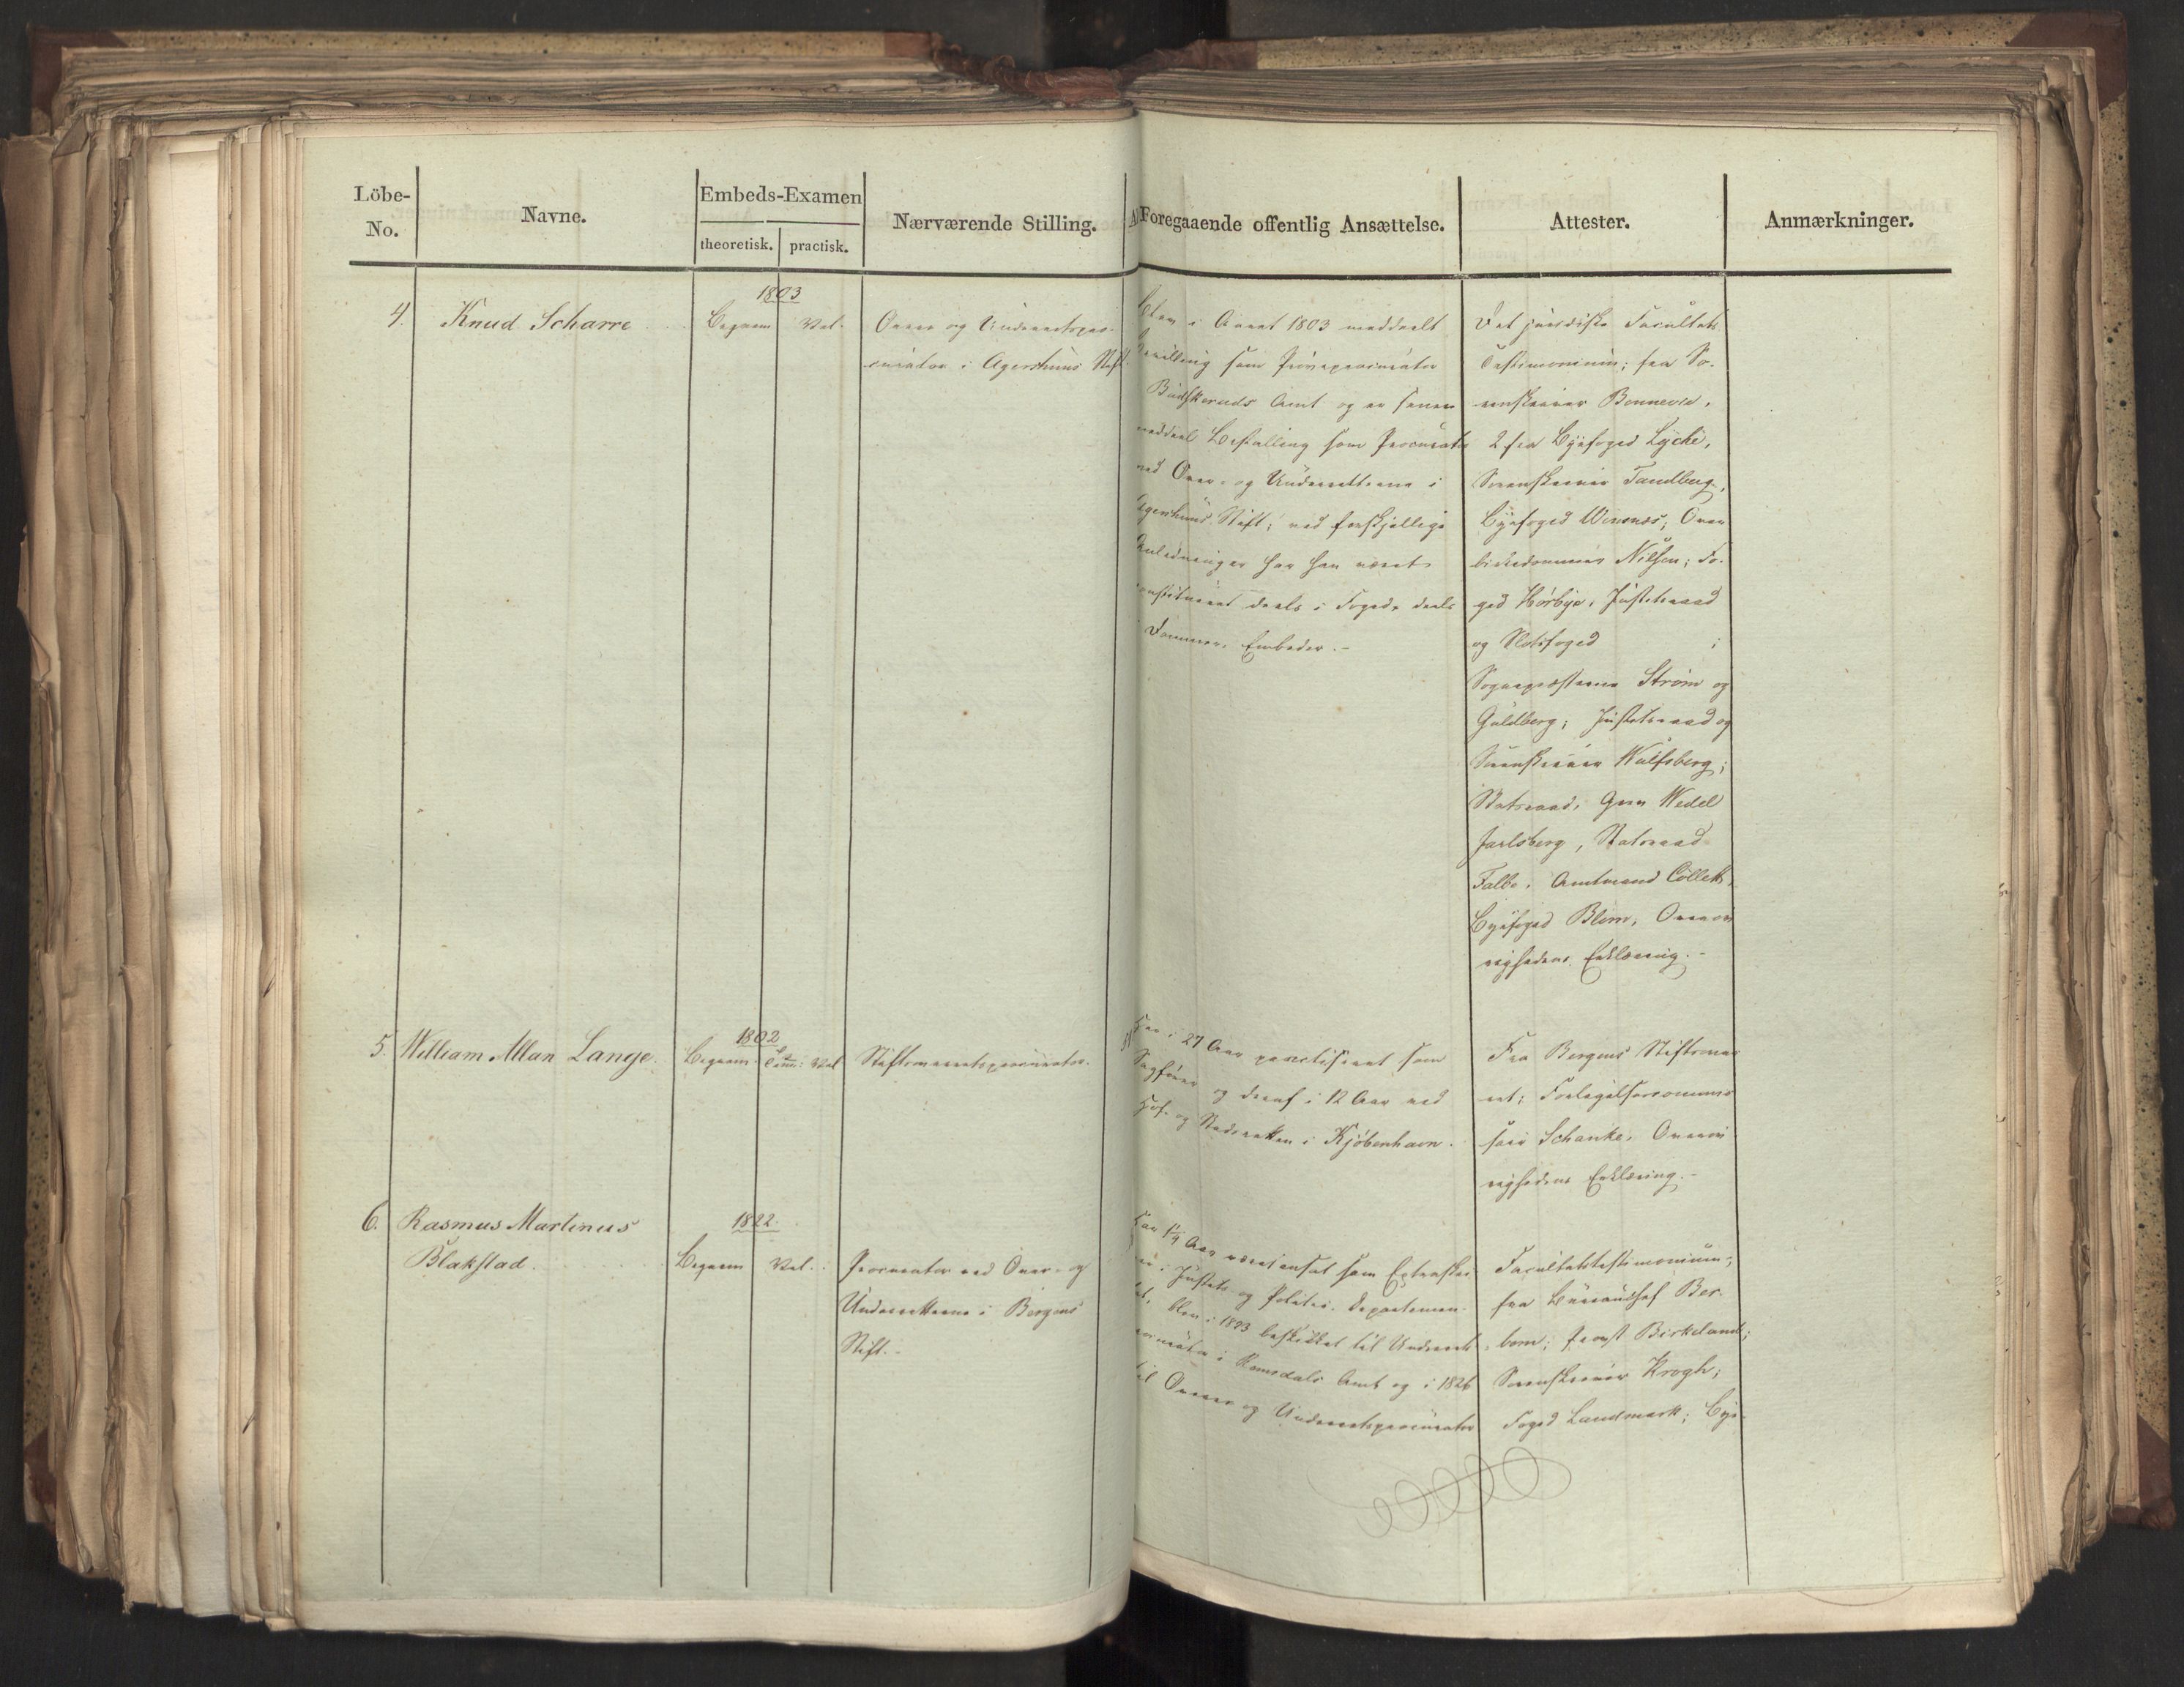 Löbe-
No.
Navne.
Embeds-Examen
theoretisk.
practisk.
Nærværende Stilling.
Foregaaende offentlig Ansættelse.
Attester.
Anmærkninger.
4.
Knud Scharre
1803
Beqvem
Vel.
Over og Underretspro-
curator i Agershuus Stift.
Blev i Aaret 1803 meddeelt
Bevilling som Prøveprocurator
Budskeruds Amt og er senere
meddeel Bestalling som Procurator
ved Over- og Underretterne i
Agershuus Stift; ved forskjellige
Anledninger har han været
constitueret deels i Foged, deels
i Dommer, Embeder.-
Det juridiske Facultets
Testimonium; fra So-
renskriver Bonnevie,
2 fra Byefoged Lyche,
Sorenskriver Tandberg,
Byefoged Winsnes, Over
birkedommer Nilsen; Fo-
ged Hørbye, Justitsraad
og Slotsfoged ;
Sognepræsterne Strøm og
Guldberg; Justitsraad og
Sorenskriver Wulfsberg;
Statsraad, Grev Wedel
Jarlsberg, Statsraad
Falbe, Amtmand Collett,
Byefoged Blom, Overøv
righedens Erklæring.-
5.
William Allan Lange.
1802
Beqvem
Vel
Stiftsoverretsprocurator.
Har i 27 Aar practiseret som
Sagfører og deraf i 12 Aar ved
Hof- og Stadsretten i Kjøbenhavn.
Fra Bergens Stiftsover
ret; Forligelsescommis
sair Schanke, Overøv
righedens Erklæring.-
6.
Rasmus Martinus
Blakstad.
1822.
Beqvem
Vel.
Procurator ved Over- og
Underretterne i Bergens
Stift.-
Har 1¼ Aar været ansat som Extraskri
ver i Justits og Politie-Departemen-
tet, blev i 1823 beskikket til Underrets
procurator i Romsdals Amt og i 1826
til Overre og Underretsprocurator
Facultetstestimonium;
fra Bureauchef Ber-
bom; Provst Birkeland;
Sorenskriver Krogh;
Foged Landmark; Bye-